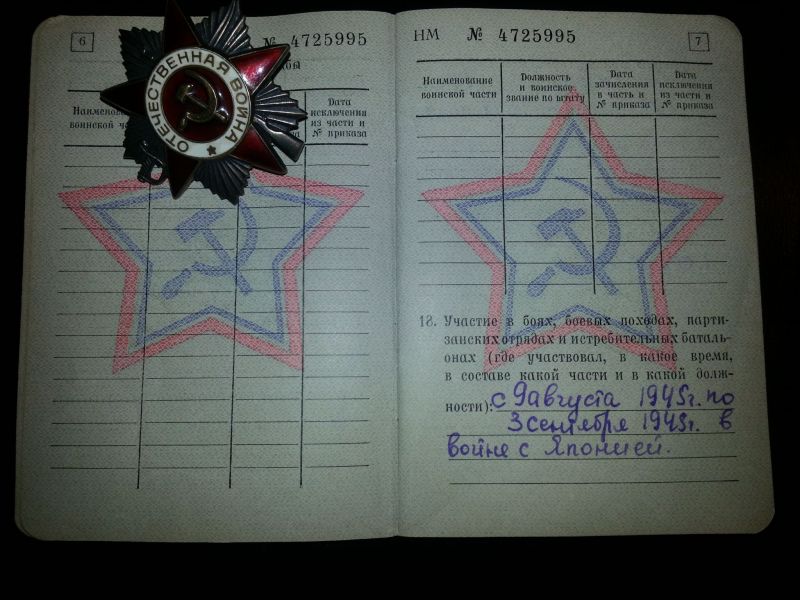 6
№ 4725995
ОТЕЧЕСТВЕННАЯ ВОЙНА
Дата
исключения
из части и
№ приказа
НМ № 4725995
7
Наименование
воинской части
Должность
и воинское
звание по штату
Дата
зачисления
в часть и
№ приказа
Дата
исключения
из части и
№ приказа
18. Участие в боях, боевых походах, парти-
занских отрядах и истребительных баталь-
онах (где участвовал, в какое время,
в составе какой части и в какой долж-
ности): с 9 августа 1945г. по
3 сентября 1945г. в
войне с Японией.